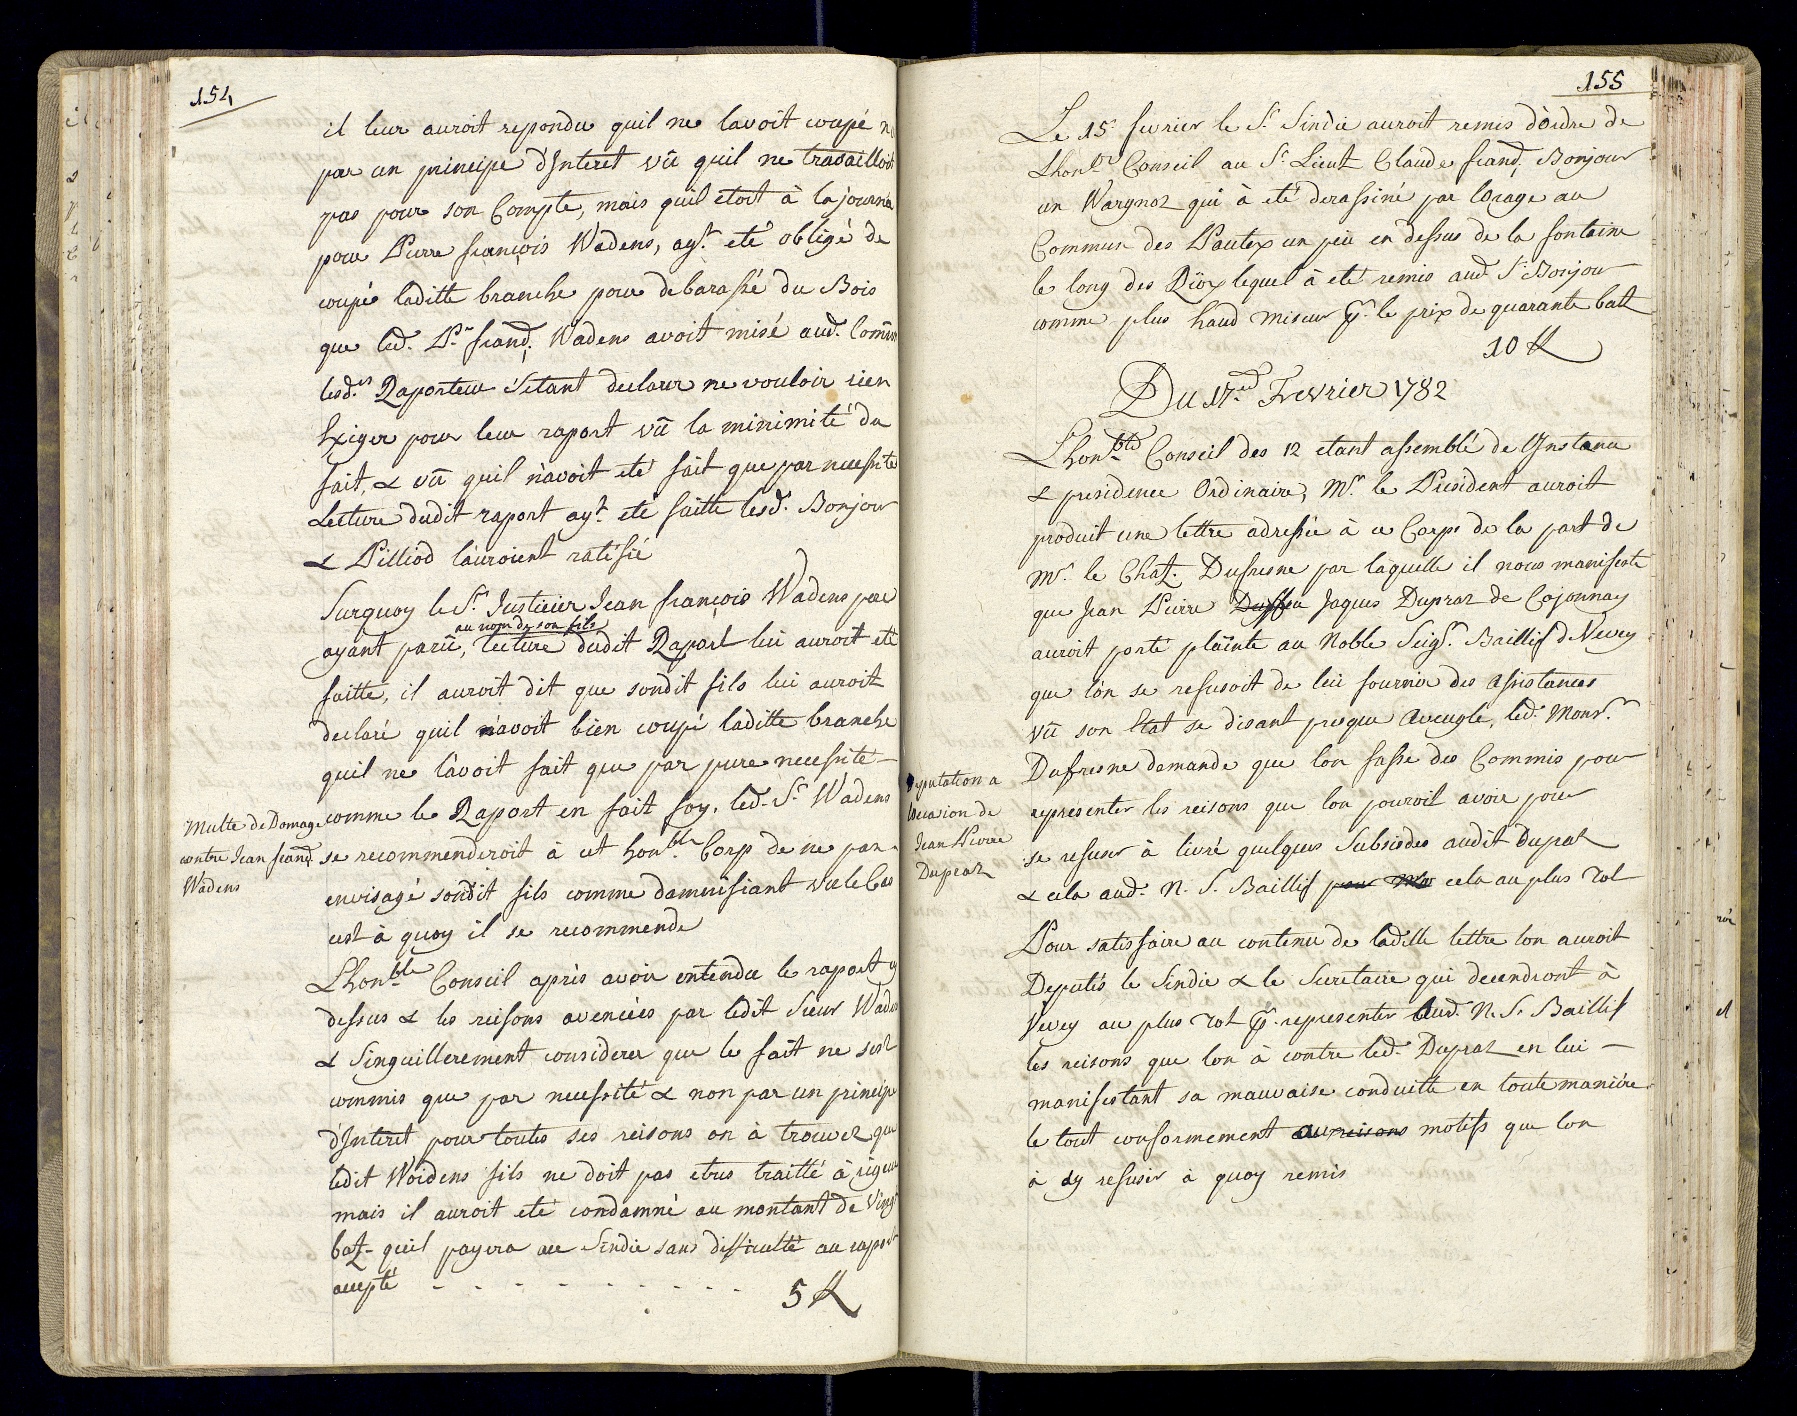 154
il leur auroit repondu quil ne lavoit coupé n
par un principe d'Interet vû quil ne travailloit
pas pour son Compte, mais quil etoit à la journée
pour Pierre françois Wadens, ayt. eté obligé de
coupé laditte branche pour debarassé du Bois
que led. Pre. francd. Wadens avoit misé aud. Comun
lesdts. Raporteur s'etant declarer ne vouloir rien
Exiger pour leur raport vû la minimité du
fait, & vû quil n'avoit eté fait que par necessité
Lecture dudit raport ayt. eté faitte lesd. Bonjour
& Pilliod l'auroient ratifié
Surquoy le Sr. Justicier Jean françois Wadens pere
au nom de son fils
ayant parû, lecture dudit Raport lui auroit eté
faitte, il auroit dit que sondit fils lui auroit
declaré quil n'avoit bien coupé laditte branche
quil ne l'avoit fait que par pure necessité
Multe de Domage
contre Jean francd.
Wadens
comme le Raport en fait foy. led. Sr. Wadens
se recommenderoit à cet honble. Corps de ne pas
envisagé sondit fils comme damnifiant vu le Cas
cest à quoy il se recommende
Lhonble. Conseil après avoir entendu le raport cy
dessus & les reisons avencées par ledit Sieur Wadens
& Singuillerement considerer que le fait ne sest
commis que par necessité & non par un principe
d'Interet pour toutes ses reisons on à trouvez que
ledit Woidens fils ne doit pas etres traitté à rigeur
mais il auroit eté condamné au montant de Vingt
batz. quil payera au Sindic sans difficulté au raport
accepté - - - - - - - - -
5 fl
155
Le 15e. fevrier le Sr. Sindic auroit remis d'òrdre de
Lhonble. Conseil au Sr. Lieut Claude francd. Bonjour
un Wargnoz qui à eté derassiné par lorage au
Commun des Pautex un peù en dessus de la fontaine
le long des Riöx lequel à eté remis aud. Sr. Bonjour
comme plus haud miseur pr. le prix de quarante batz
10 fl
Du 17me. Fevrier 1782
Lhonble. Conseil des 12 etant assemblé de l'Instance
& presidence Ordinaire, Mr. le President auroit
produit une lettre adressée à ce Corps de la part de
Mr. le Chat. Dufresne par laquelle il nous manifeste
que Jean Pierre Jaques Dupraz de Cojonnay
auroit porté plainte au Noble Seigr. Baillif d Vevey
que lòn se refusoit de lui fournir des assistances
vû son Etat se disant presque aveugle, led. Monsr.
Dufresne demande que lon fasse des Commis pour
Deputation a
loccasion de
Jean Pierre
Dupraz
representer les reisons que lon pouroit avoir pour
se refuser à livré quelques Subsides audit Dupraz
& cela aud. N. S. Baillif pour cela au plus tot
Pour satisfaire au contenu de laditte lettre lon auroit
Deputés le Sindic & le Secretaire qui decendront à
Vevey au plus tot pr. representer Aud. N. S. Baillif
les reisons que lon à contre led. Dupraz en lui
manifestant sa mauvaise conduitte en toute maniére
le tout conformement au reisons motifs que lon
à dy refuser à quoy remis